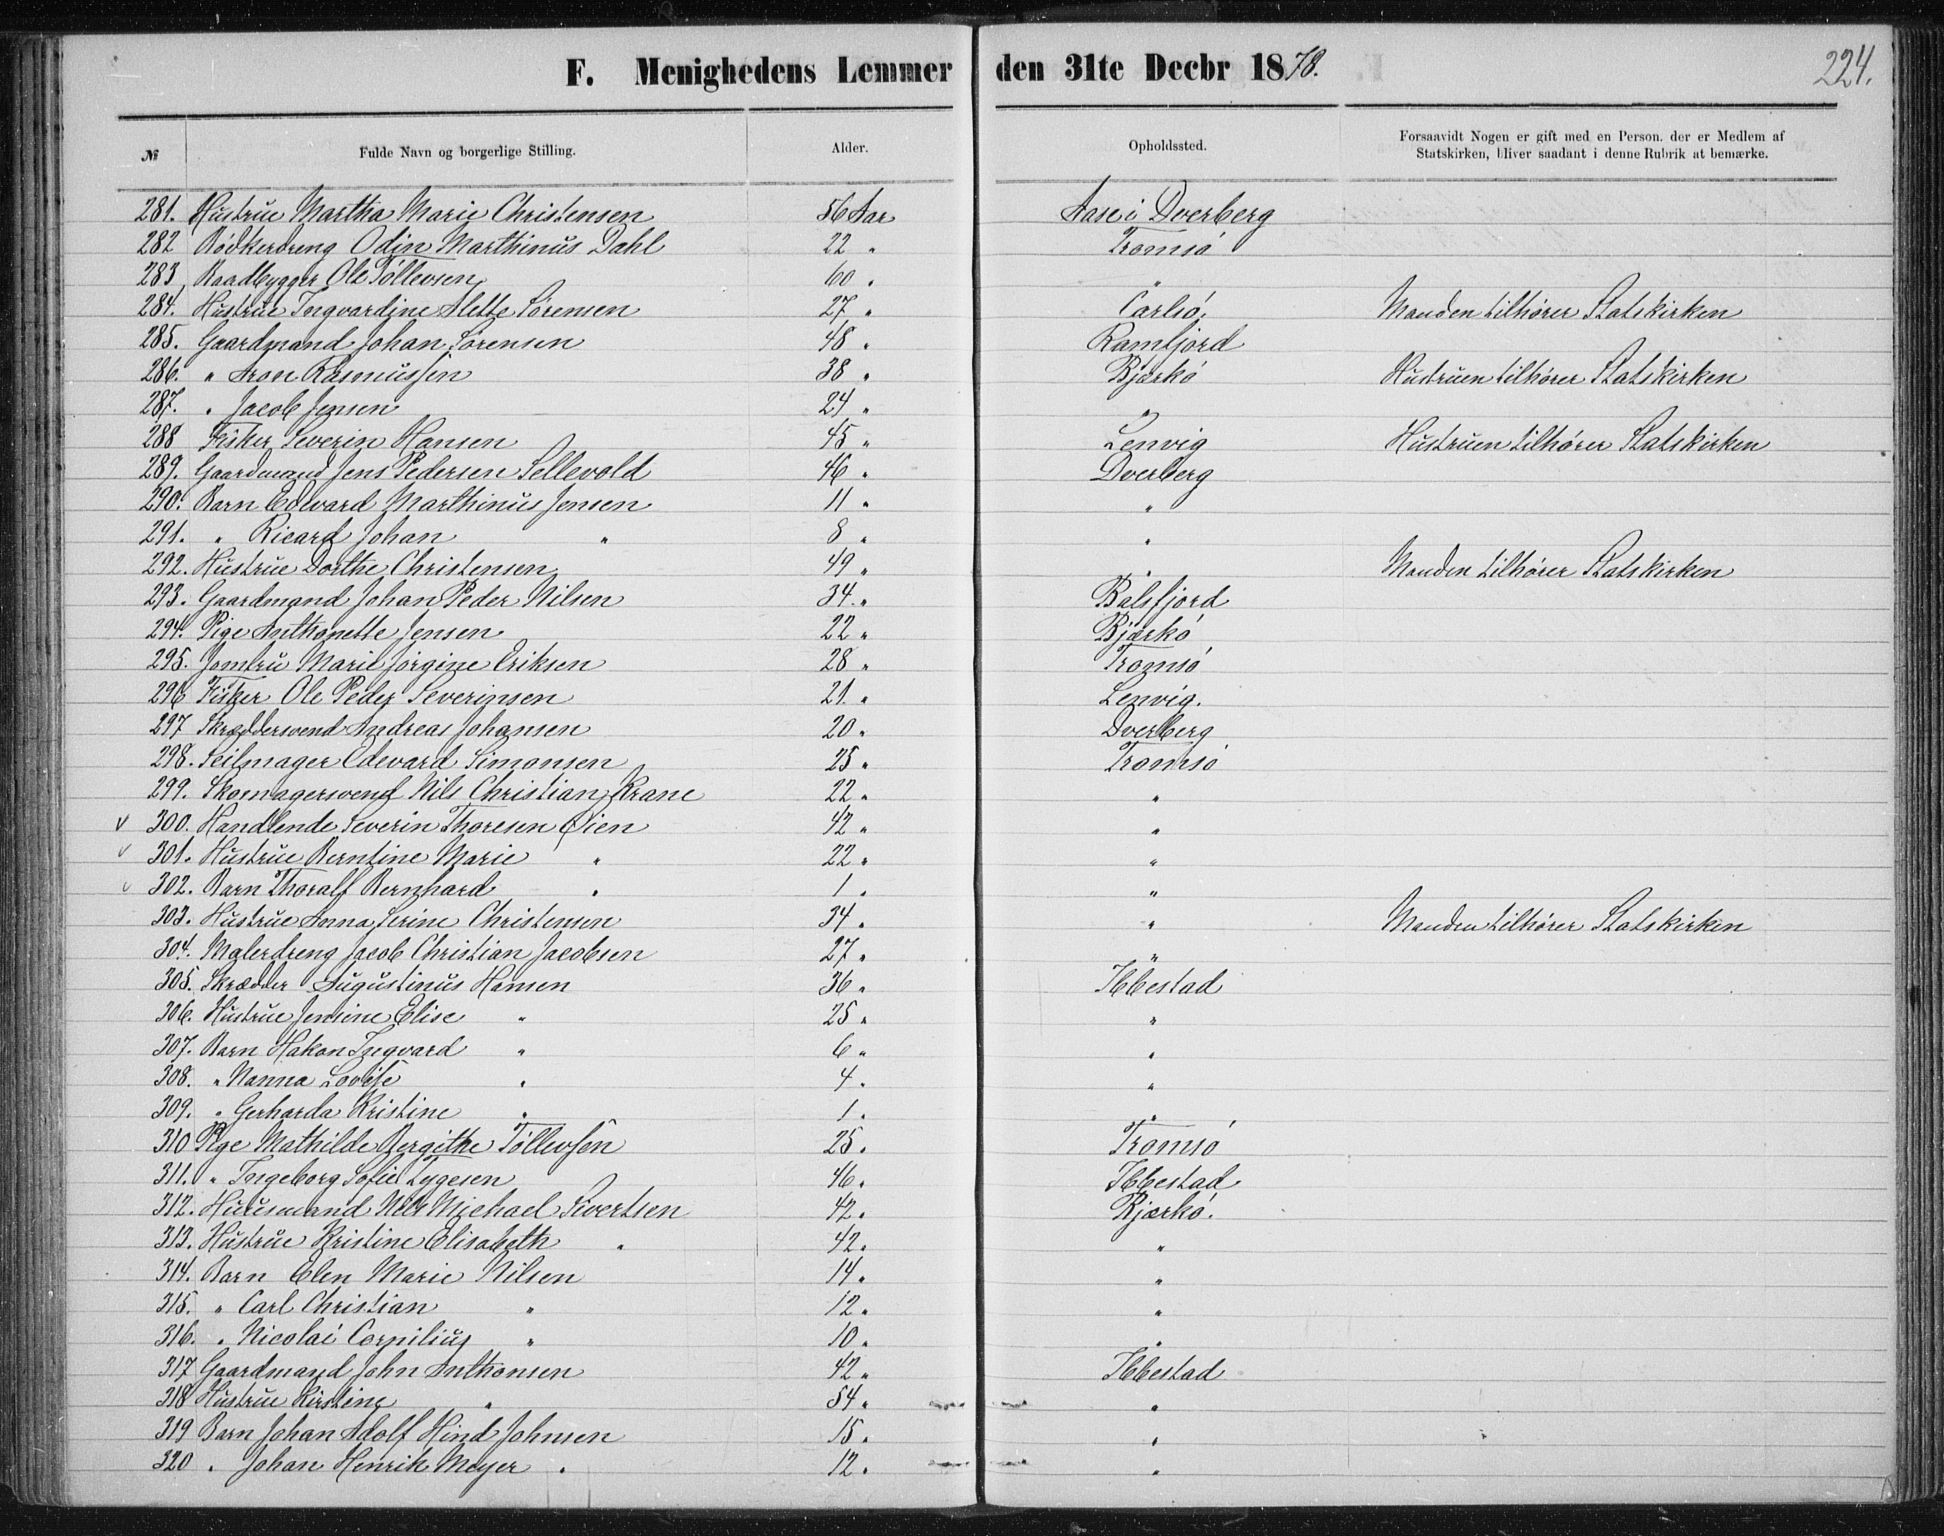 F. Menighedens Lemmer den 31te Decbr 1878.
224.
№ Fulde Navn og borgerlige Stilling. Alder. Opholdssted. Forsaavidt Nogen er gift med en Person, der er Medlem af
Statskirken, bliver saadant i denne Rubrik at bemærke.
281. Hustrue Martha Marie Christensen 56 Aar Aase i Dverberg
282 Bødkerdreng Odin Marthinus Dahl 22 " Tromsö
283 Baadbygger Ole Tøllevsen 60 " "
284. Hustrue Ingvardine Alette Sørensen 27 " Carlsö. Manden tilhører Statskirken
285. Gaardmand Johan Sørensen 48 " Ramfjord
286. " Aron Rasmussen 38 " Bjærkö Hustruen tilhører Statskirken
287. " Jacob Jensen 24 " "
288 Fisker Severin Hansen 45 " Lenvig Hustruen tilhører Statskirken
289. Gaardmand Jens Pedersen Sellevold 46 " Dverberg
290. Barn Edevard Marthinus Jensen 11 " "
291. " Ricard Johan " 8 " "
292. Hustrue Dorthe Christensen 49 " " Manden tilhører Statskirken
293. Gaardmand Johan Peder Nilsen 34. " Balsfjord
294. Pige Anthonette Jensen 22 " Bjærkö
295. Jomfru Marie Jørgine Eriksen 28 " Tromsö
296 Fisker Ole Peder Severinsen 21. " Lenvig.
297 Skræddersvend Andreas Johansen 20 " Dverberg
298. Seilmager Edevard Simonsen 25 " Tromsö
299. Skomagersvend Nils Christian Krane 22 " "
v 300. Handlende Severin Thoresen Øien 42 " "
v 301. Hustrue Berntine Marie " 22 " "
v 302. Barn Thoralf Bernhard " 1 " "
303. Hustrue Anna Serine Christensen 34 " " Manden tilhører Statskirken
304. Malerdreng Jacob Christian Jacobsen 27 " "
305. Skrædder Augustinus Hansen 36 " Ibbestad
306. Hustrue Jensine Elise " 25 " "
307. Barn Hakon Ingvard " 6 " "
308. " Nanna Lovise " 4 " "
309. " Gerharda Kristine " 1 " "
310 Pige Mathilde Bergithe Tøllevsen 25 " Tromsö
311. " Ingeborg Sofie Tygesen 46 " Ibbestad
312. Huusmand Nils Michael Sivertsen 42 " Bjærkö.
313. Hustrue Kristine Elisabeth " 42 " "
314. Barn Elen Marie Nilsen 14 " "
315. " Carl Christian " 12 " "
316. " Nicolai Cornilius " 10 " "
317 Gaardmand John Anthonsen 42 " Ibbestad
318 Hustrue Kirstine " 54 " "
319 Barn Johan Adolf Hind Johnsen 15 " "
320 " Johan Henrik Meyer " 12 " "